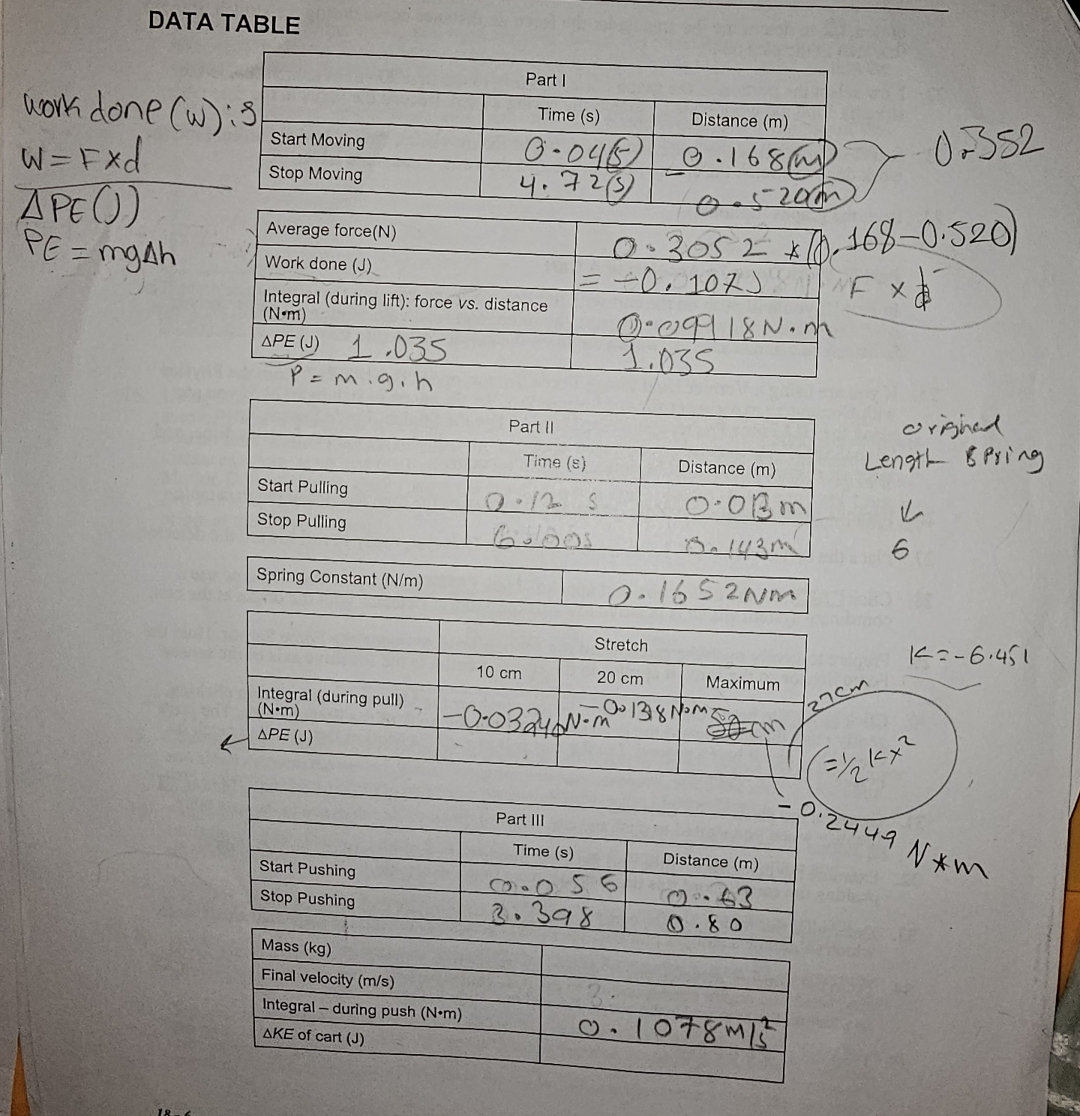 DATA TABLE
work done (w):
W = F x d
ΔPE(J)
PE = mgΔh
Part I
Time (s) Distance (m)
Start Moving 0.04(s) 0.168(m)
Stop Moving 4.72(s) 0.520(m)
0.352
Average force(N) 0.3052 * (0.168-0.520)
Work done (J) = -0.107J F x d
Integral (during lift): force vs. distance
(N•m) 0.09918N.m
ΔPE (J) 1.035 1.035
P = m.g.h
Part II
Time (s) Distance (m)
Start Pulling 0.12 s 0.013m
Stop Pulling 0.143m
original
Length spring
↓
6
Spring Constant (N/m) 0.1652Nm
K = -6.451
Stretch
10 cm 20 cm Maximum
27cm
Integral (during pull)
(N•m) -0.0324 N.m -0.1318N.m
ΔPE (J)
= 1/2 Kx²
-0.2449 N*m
Part III
Time (s) Distance (m)
Start Pushing 0.056 0.63
Stop Pushing 3.398 0.80
Mass (kg)
Final velocity (m/s)
Integral – during push (N•m) 0.1078m/s²
ΔKE of cart (J)